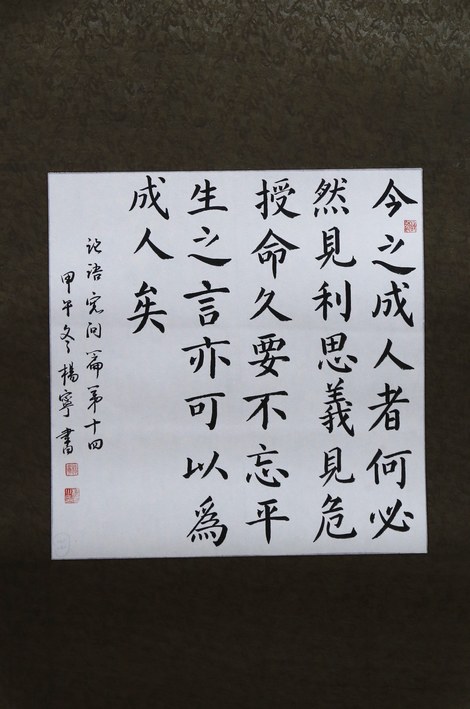 今之成人者何必
然見利思義見危
授命久要不忘平
生之言亦可以為
成人矣
论语宪问篇第十四
甲午冬楊寧書